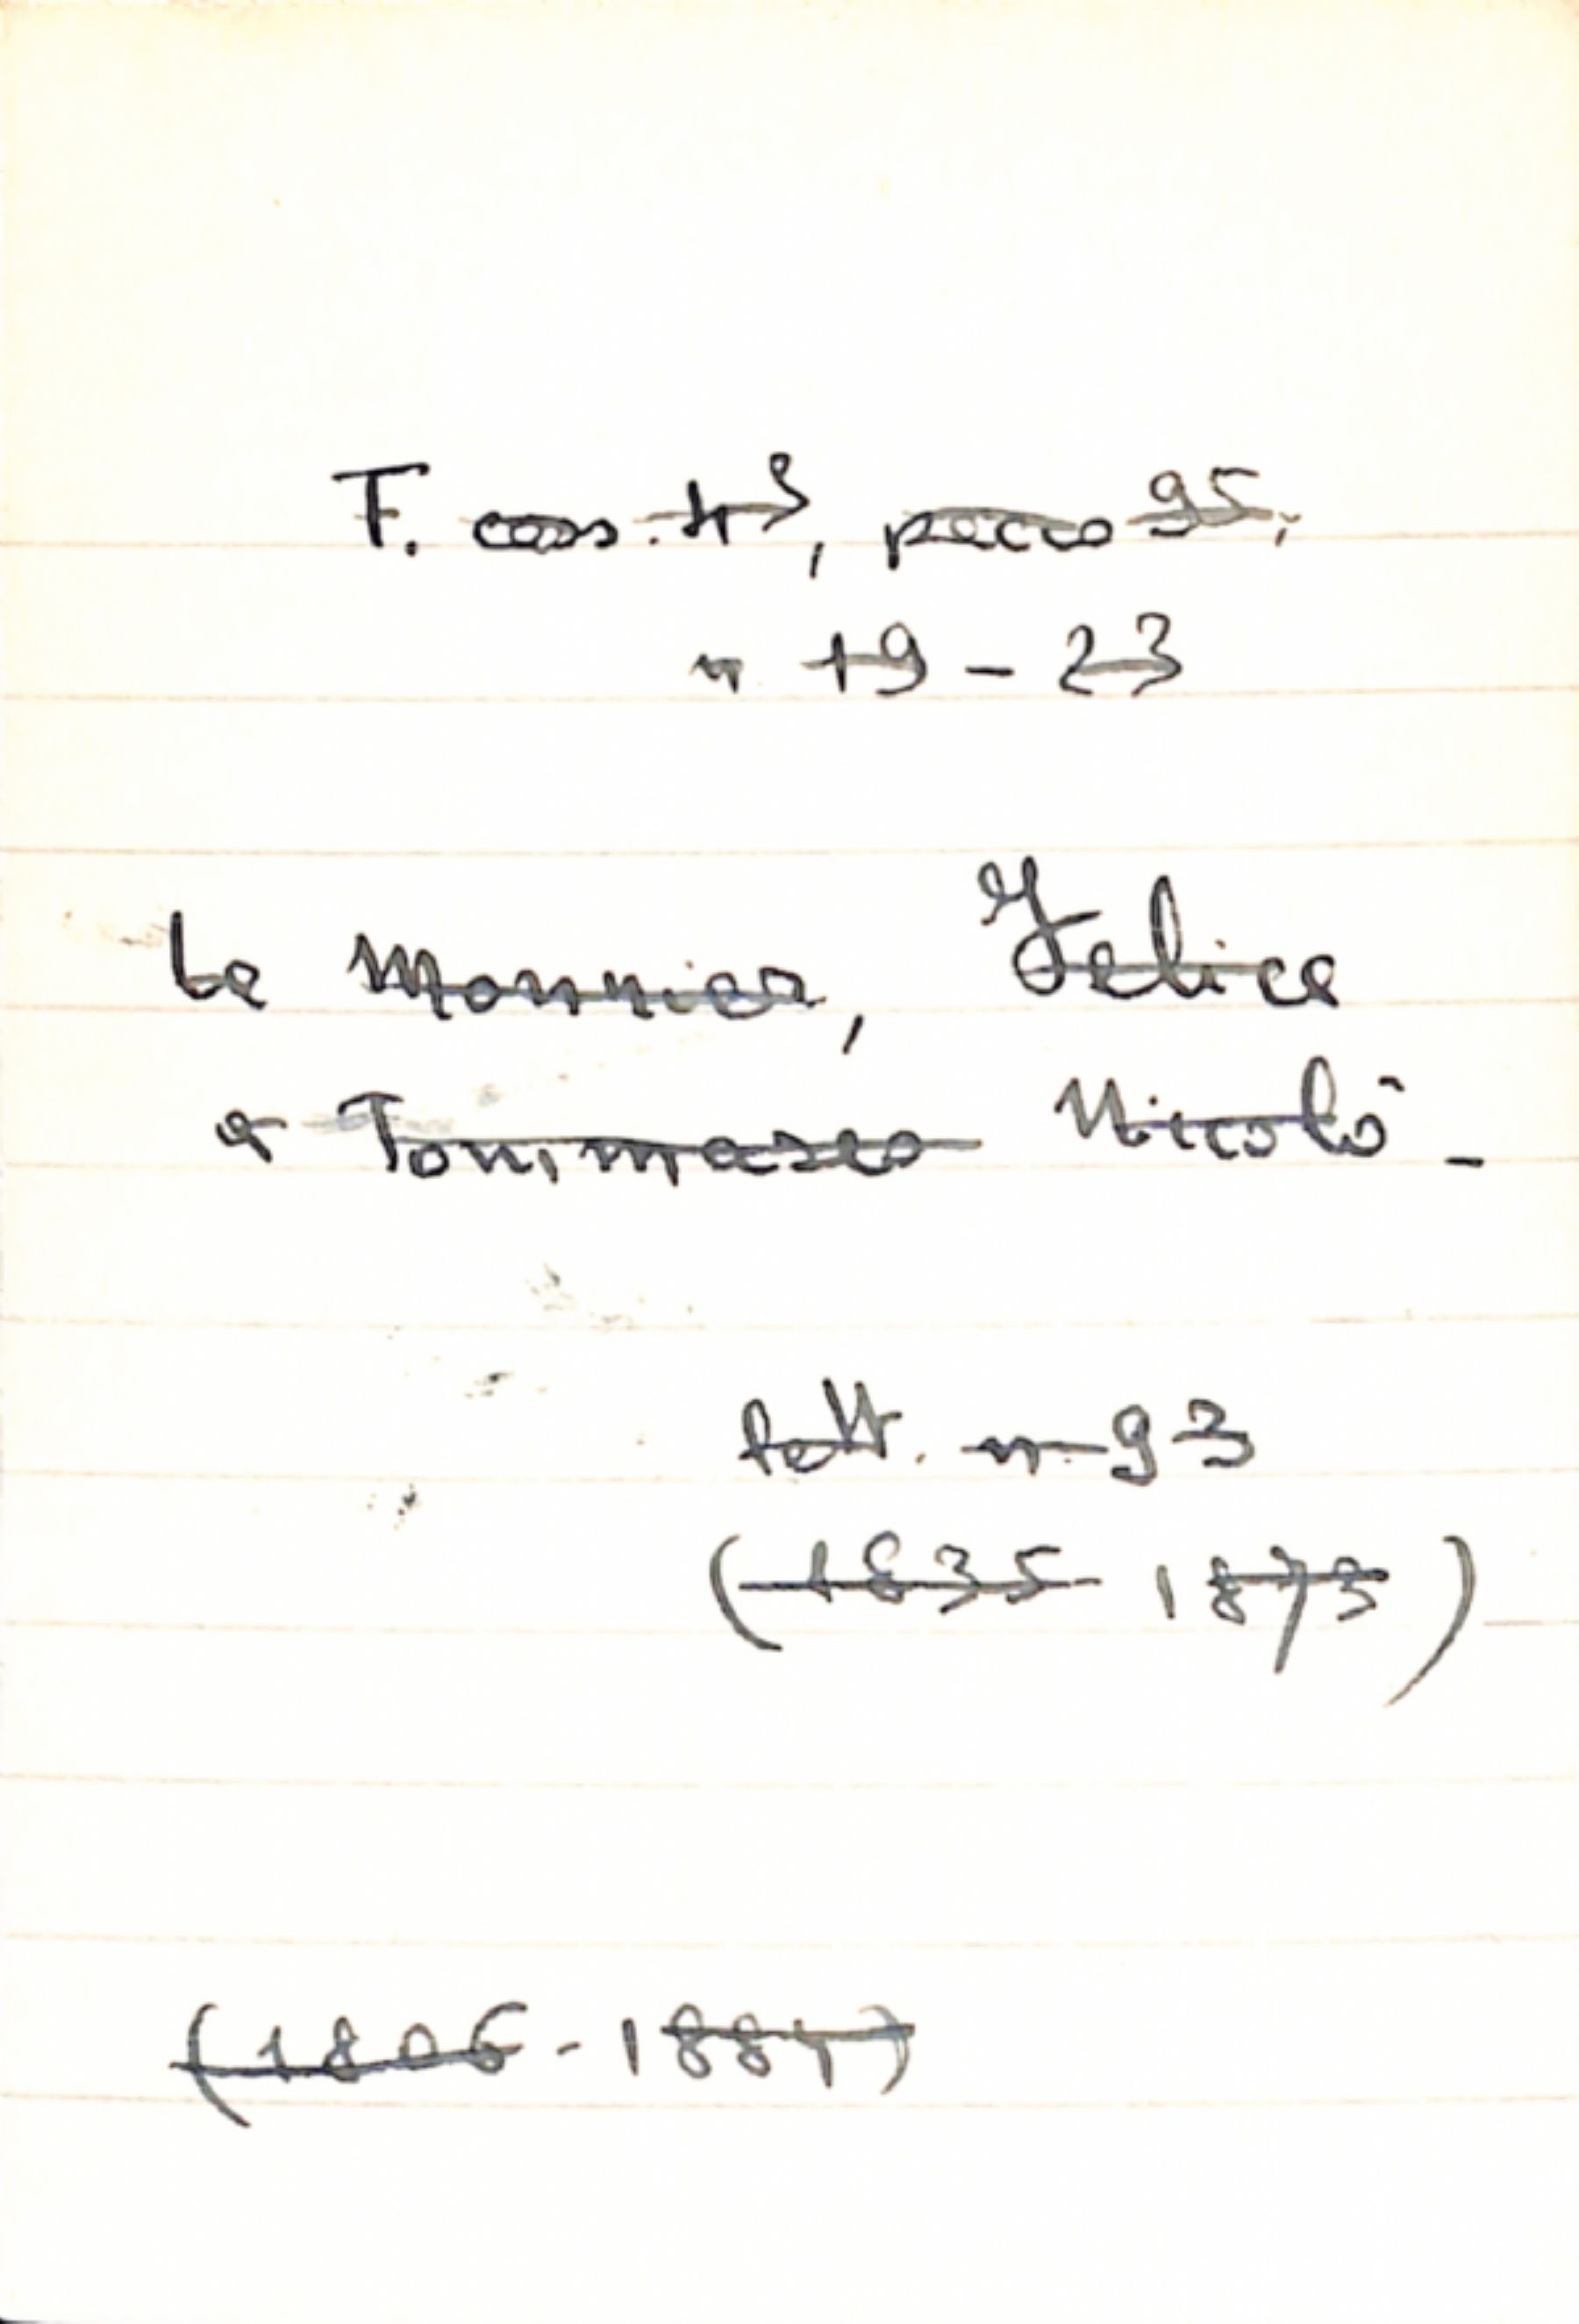 F. cass. 43, pacco 95,
n. 19 - 23
Le Monnier, Felice
a Tommaseo Nicolò -
lett. n. 93
(1835 - 1873)
(1806 - 1884)